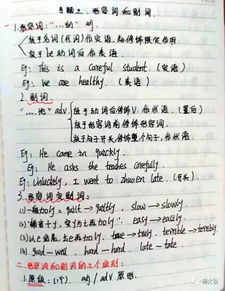 专题二、形容词和副词
一、形容词: "…的" adj
放于名词(代词)作定语, 起修饰限定作用
放于be动词后作表语
Eg: This is a careful student. (定语)
Eg: We are healthy. (表语)
2. 副词
"…地" adv 放于动词后修饰V. 作状语 (置后)
放于形容词前修饰形容词.
放于句子开头修饰整个句子, 作状语.
Eg: He came in quickly.
Eg: He asks the teacher carefully.
Eg: Unluckily, I went to late. (开头)
3. 形容词变副词:
(1) 一般加ly: slow → slowly.
(2) 变y为i加ly: easy → easily
(3) 以e结尾, true → truly. terrible → terribly
(4) good - well. hard - hard. late - late.
二、形容词和副词的三个级别:
1. 原级: adj / adv 原形.